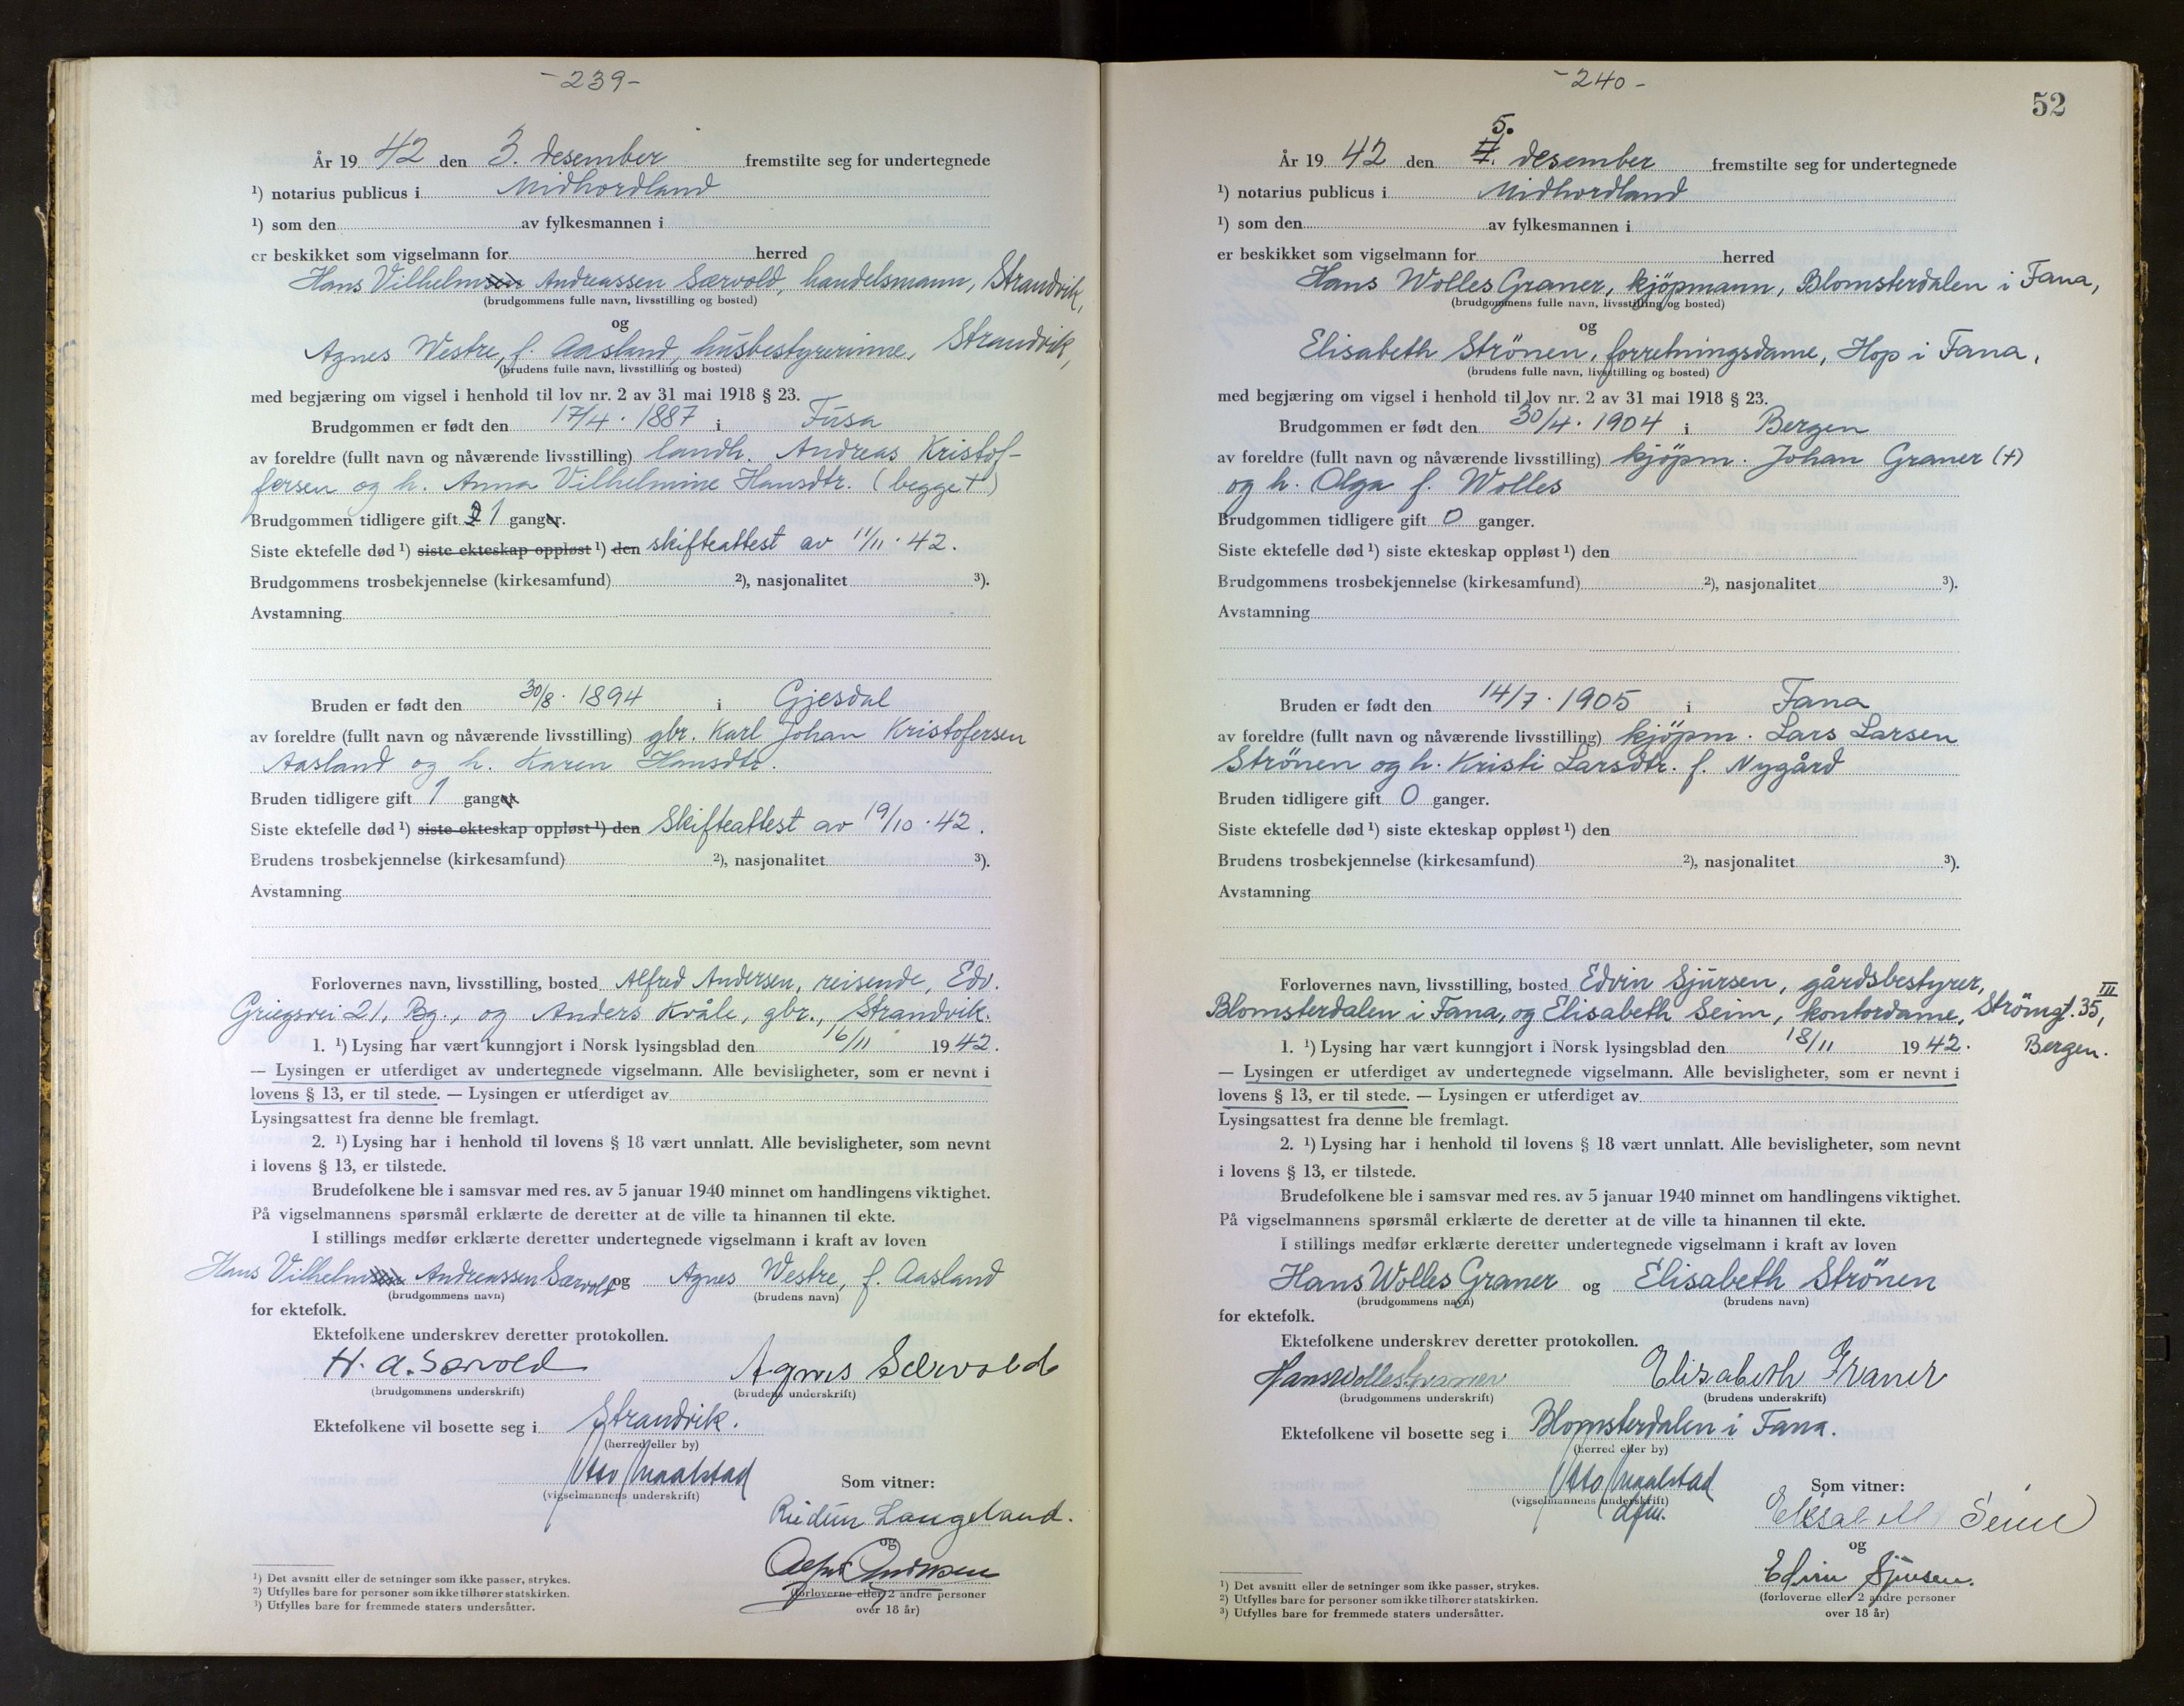 -239-
År 19 42 den 3. desember fremstilte seg for undertegnede
¹) notarius publicus i Midhordland
¹) som den av fylkesmannen i
er beskikket som vigselmann for herred
Hans Vilhelm Andreassen Sævold, handelsmann, Strandvik,
(brudgommens fulle navn, livsstilling og bosted)
og
Agnes Westre, f. Aasland, husbestyrerinne, Strandvik,
(brudens fulle navn, livsstilling og bosted)
med begjæring om vigsel i henhold til lov nr. 2 av 31 mai 1918 § 23.
Brudgommen er født den 17/4. 1887 i Fusa
av foreldre (fullt navn og nåværende livsstilling) landh. Andreas Kristof-
fersen og h. Anna Vilhelmine Hansdtr. (begge †)
Brudgommen tidligere gift 1 ganger.
Siste ektefelle død ¹) siste ekteskap oppløst ¹) den skifteattest av 11/11. 42.
Brudgommens trosbekjennelse (kirkesamfund) ²), nasjonalitet ³).
Avstamning
Bruden er født den 30/8. 1894 i Gjesdal
av foreldre (fullt navn og nåværende livsstilling) gbr. Karl Johan Kristofersen
Aasland og h. Karen Hansdtr.
Bruden tidligere gift 1 ganger
Siste ektefelle død ¹) siste ekteskap oppløst ¹) den Skifteattest av 19/10. 42.
Brudens trosbekjennelse (kirkesamfund) ²), nasjonalitet ³).
Avstamning
Forlovernes navn, livsstilling, bosted Alfred Andersen, reisende, Edv.
Griegsvei 21, Bg., og Anders Kvåle, gbr., Strandvik.
1. ¹) Lysing har vært kunngjort i Norsk lysingsblad den 16/11 19 42.
— Lysingen er utferdiget av undertegnede vigselmann. Alle bevisligheter, som er nevnt i
lovens § 13, er til stede. — Lysingen er utferdiget av
Lysingsattest fra denne ble fremlagt.
2. ¹) Lysing har i henhold til lovens § 18 vært unnlatt. Alle bevisligheter, som nevnt
i lovens § 13, er tilstede.
Brudefolkene ble i samsvar med res. av 5 januar 1940 minnet om handlingens viktighet.
På vigselmannens spørsmål erklærte de deretter at de ville ta hinannen til ekte.
I stillings medfør erklærte deretter undertegnede vigselmann i kraft av loven
Hans Vilhelm Andreassen Sævold og Agnes Westre, f. Aasland
(brudgommens navn) (brudens navn)
for ektefolk.
Ektefolkene underskrev deretter protokollen.
H. A. Sævold Agnes Sævold
(brudgommens underskrift) (brudens underskrift)
Ektefolkene vil bosette seg i Strandvik.
(herred eller by)
Otto Maalstad
(vigselmannens underskrift)
Som vitner:
Langeland.
og
Alfred Andersen
(forloverne eller 2 andre personer
over 18 år)
¹) Det avsnitt eller de setninger som ikke passer, strykes.
²) Utfylles bare for personer som ikke tilhører statskirken.
³) Utfylles bare for fremmede staters undersåtter.
-240-
52
5.
År 19 42 den 7. desember fremstilte seg for undertegnede
¹) notarius publicus i Midhordland
¹) som den av fylkesmannen i
er beskikket som vigselmann for herred
Hans Wolles Graner, kjöpmann, Blomsterdalen i Fana,
(brudgommens fulle navn, livsstilling og bosted)
og
Elisabeth Strönen, forretningsdame, Hop i Fana,
(brudens fulle navn, livsstilling og bosted)
med begjæring om vigsel i henhold til lov nr. 2 av 31 mai 1918 § 23.
Brudgommen er født den 30/4. 1904 i Bergen
av foreldre (fullt navn og nåværende livsstilling) kjöpm. Johan Graner (†)
og h. Olga f. Wolles
Brudgommen tidligere gift 0 ganger.
Siste ektefelle død ¹) siste ekteskap oppløst ¹) den
Brudgommens trosbekjennelse (kirkesamfund) ²), nasjonalitet ³).
Avstamning
Bruden er født den 14/7. 1905 i Fana
av foreldre (fullt navn og nåværende livsstilling) kjöpm. Lars Larsen
Strönen og h. Kristi Larsdtr. f. Nygård
Bruden tidligere gift 0 ganger.
Siste ektefelle død ¹) siste ekteskap oppløst ¹) den
Brudens trosbekjennelse (kirkesamfund) ²), nasjonalitet ³).
Avstamning
Forlovernes navn, livsstilling, bosted Edvin Sjursen, gårdsbestyrer,
Blomsterdalen i Fana, og Elisabeth Seim, kontordame, Strömgt. 35 III,
Bergen.
1. ¹) Lysing har vært kunngjort i Norsk lysingsblad den 18/11 19 42.
— Lysingen er utferdiget av undertegnede vigselmann. Alle bevisligheter, som er nevnt i
lovens § 13, er til stede. — Lysingen er utferdiget av
Lysingsattest fra denne ble fremlagt.
2. ¹) Lysing har i henhold til lovens § 18 vært unnlatt. Alle bevisligheter, som nevnt
i lovens § 13, er tilstede.
Brudefolkene ble i samsvar med res. av 5 januar 1940 minnet om handlingens viktighet.
På vigselmannens spørsmål erklærte de deretter at de ville ta hinannen til ekte.
I stillings medfør erklærte deretter undertegnede vigselmann i kraft av loven
Hans Wolles Graner og Elisabeth Strönen
(brudgommens navn) (brudens navn)
for ektefolk.
Ektefolkene underskrev deretter protokollen.
Hans Wolles Graner Elisabeth Graner
(brudgommens underskrift) (brudens underskrift)
Ektefolkene vil bosette seg i Blomsterdalen i Fana.
(herred eller by)
Otto Maalstad
dfm.
(vigselmannens underskrift)
Som vitner:
Elisabeth Seim
og
Edvin Sjursen.
(forloverne eller 2 andre personer
over 18 år)
¹) Det avsnitt eller de setninger som ikke passer, strykes.
²) Utfylles bare for personer som ikke tilhører statskirken.
³) Utfylles bare for fremmede staters undersåtter.